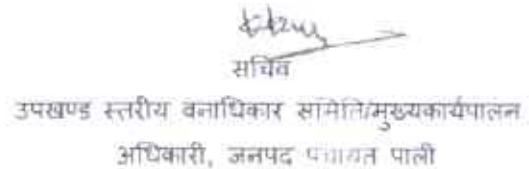 सचिव
उपखण्ड स्तरीय वनाधिकार समिति/मुख्यकार्यपालन
अधिकारी, जनपद पंचायत पाली